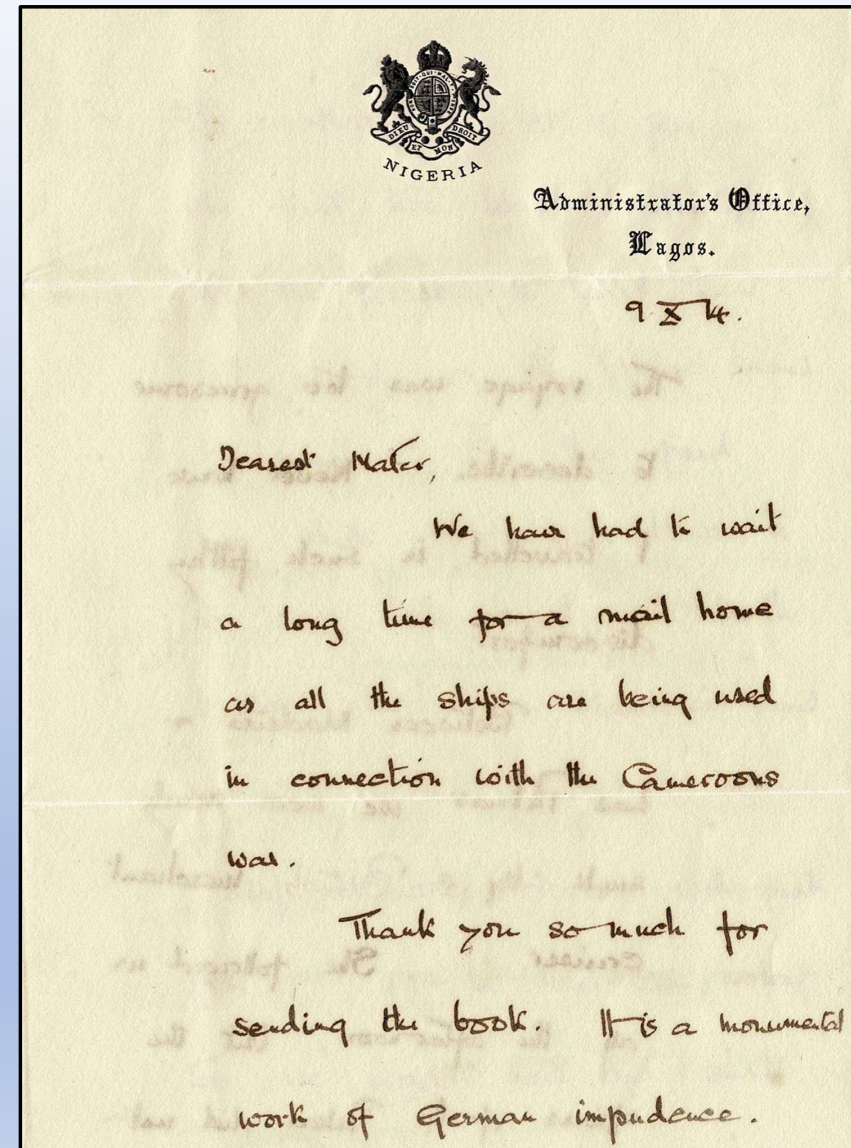 DIEU ET MON DROIT
NIGERIA
Administrator's Office,
Lagos.
9 X 14.
Dearest Mater,
We have had to wait
a long time for a mail home
as all the ships are being used
in connection with the Cameroons
war.
Thank you so much for
sending the book. It is a monumental
work of German impudence.